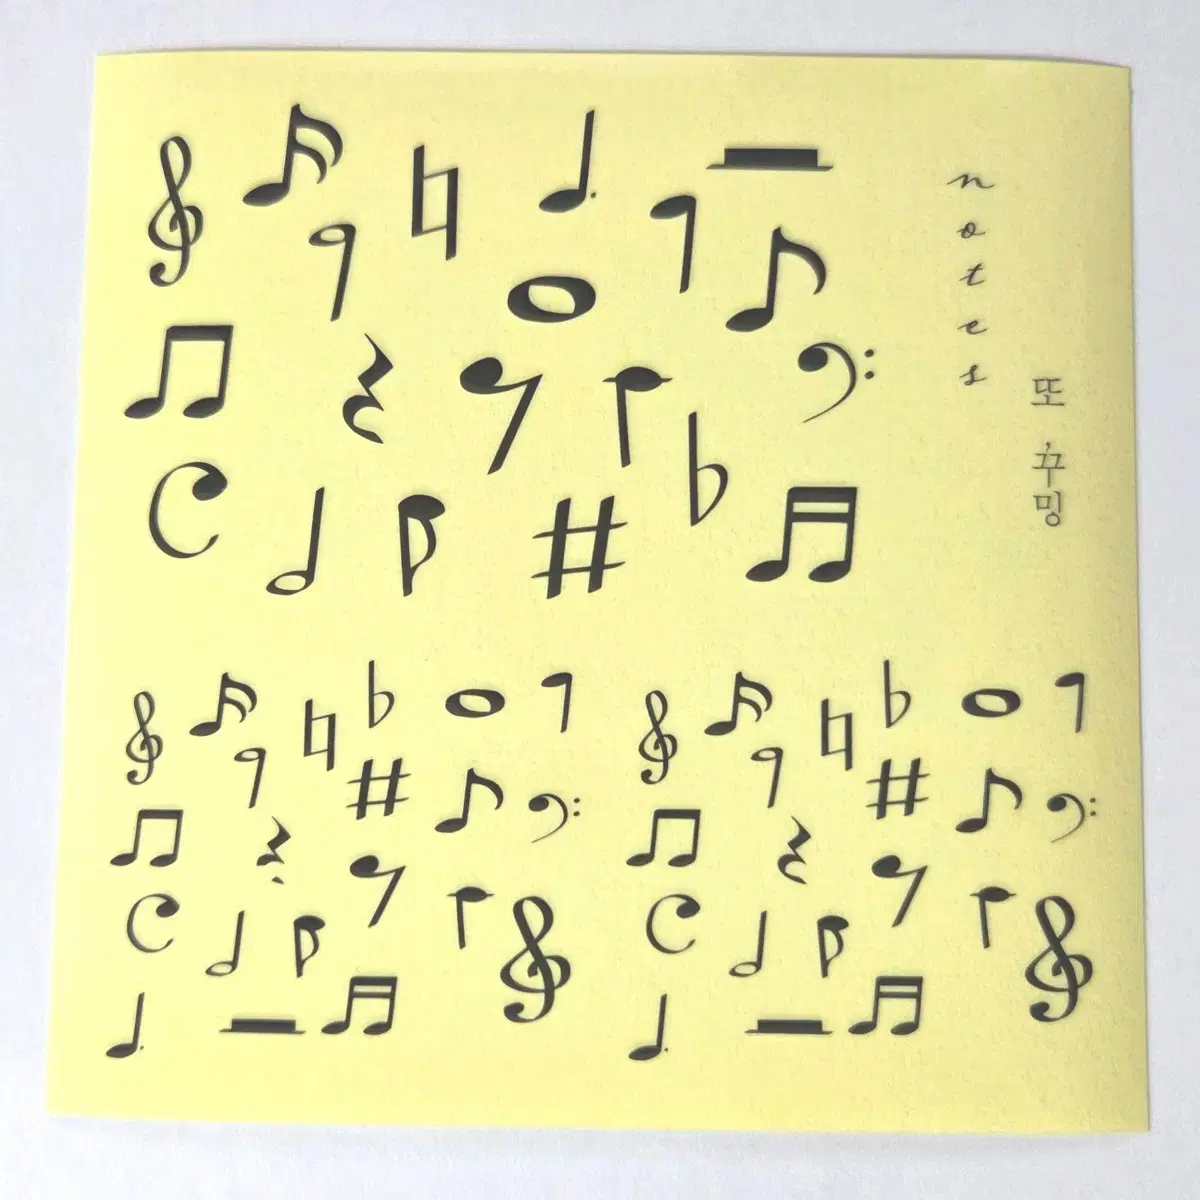 notes
또 꾸밍